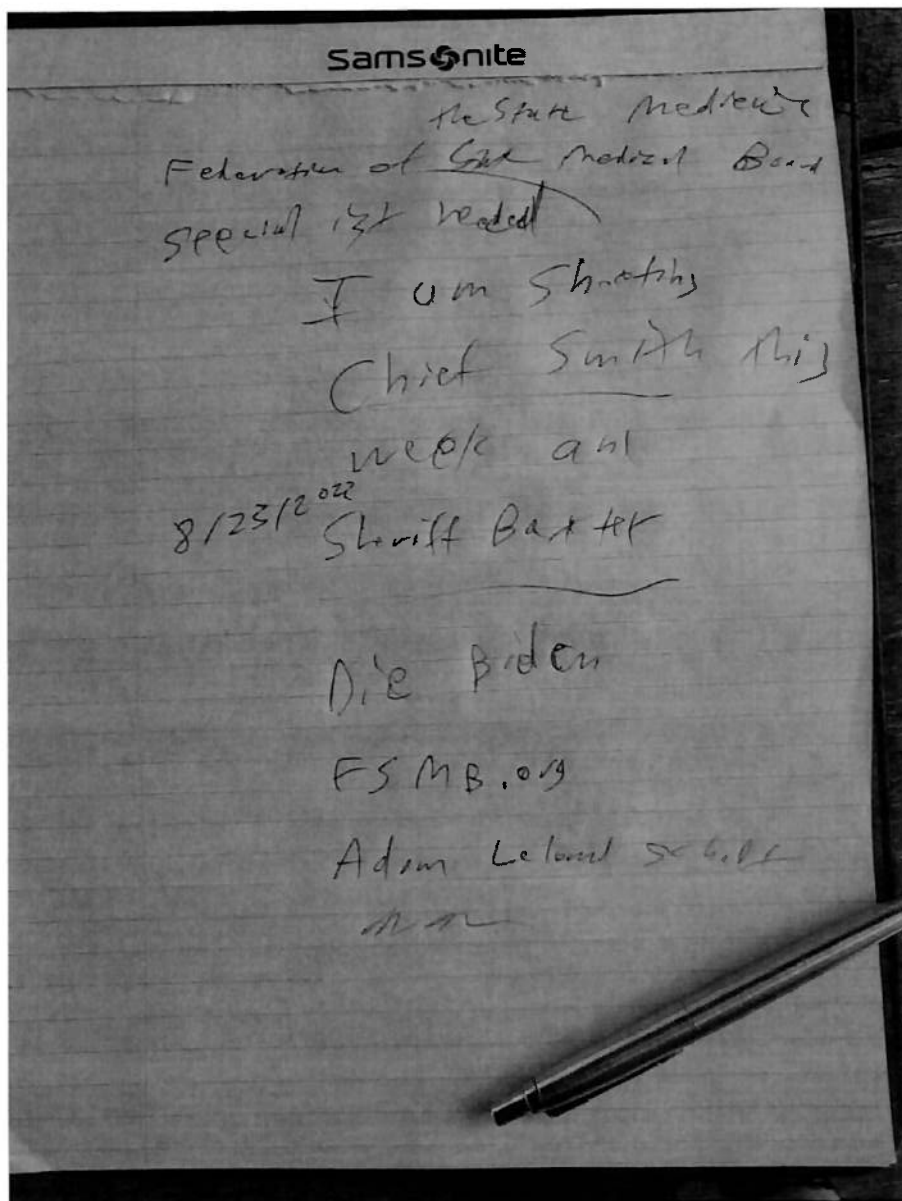 Samsonite
the State Medicine
Federation of Medical Board
special ist needed
I am Shooting
Chief Smith this
week and
8/23/2022
Sheriff Baxter
Die Biden
FSMB.org
Adam Leland